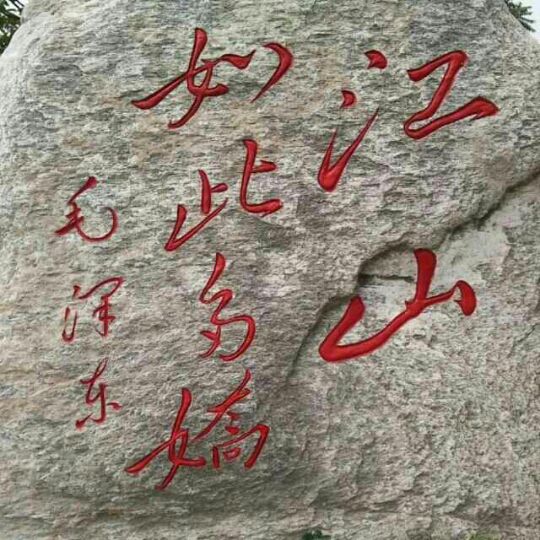 江山
如此多嬌
毛泽东